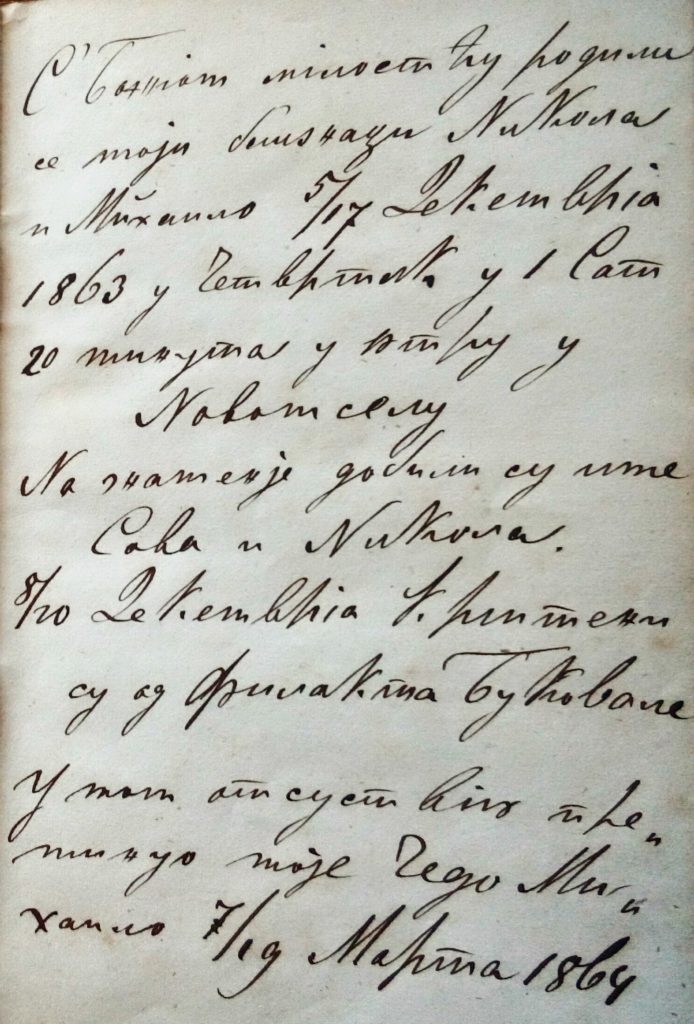 С' Божіом милостићу родили
се моји близнаци Никола
и Михаило 5/17 Декембріа
1863 у Четвртак у 1 Сат
20 минута у јутру у
Новомселу
На знамење добили су име
Сава и Никола.
8/20 Декембріа Крштени
су од Филакта Буковале
У мом отсуствію пре„
минуо моје Чедо Ми„
хаило 7/19 Марта 1864